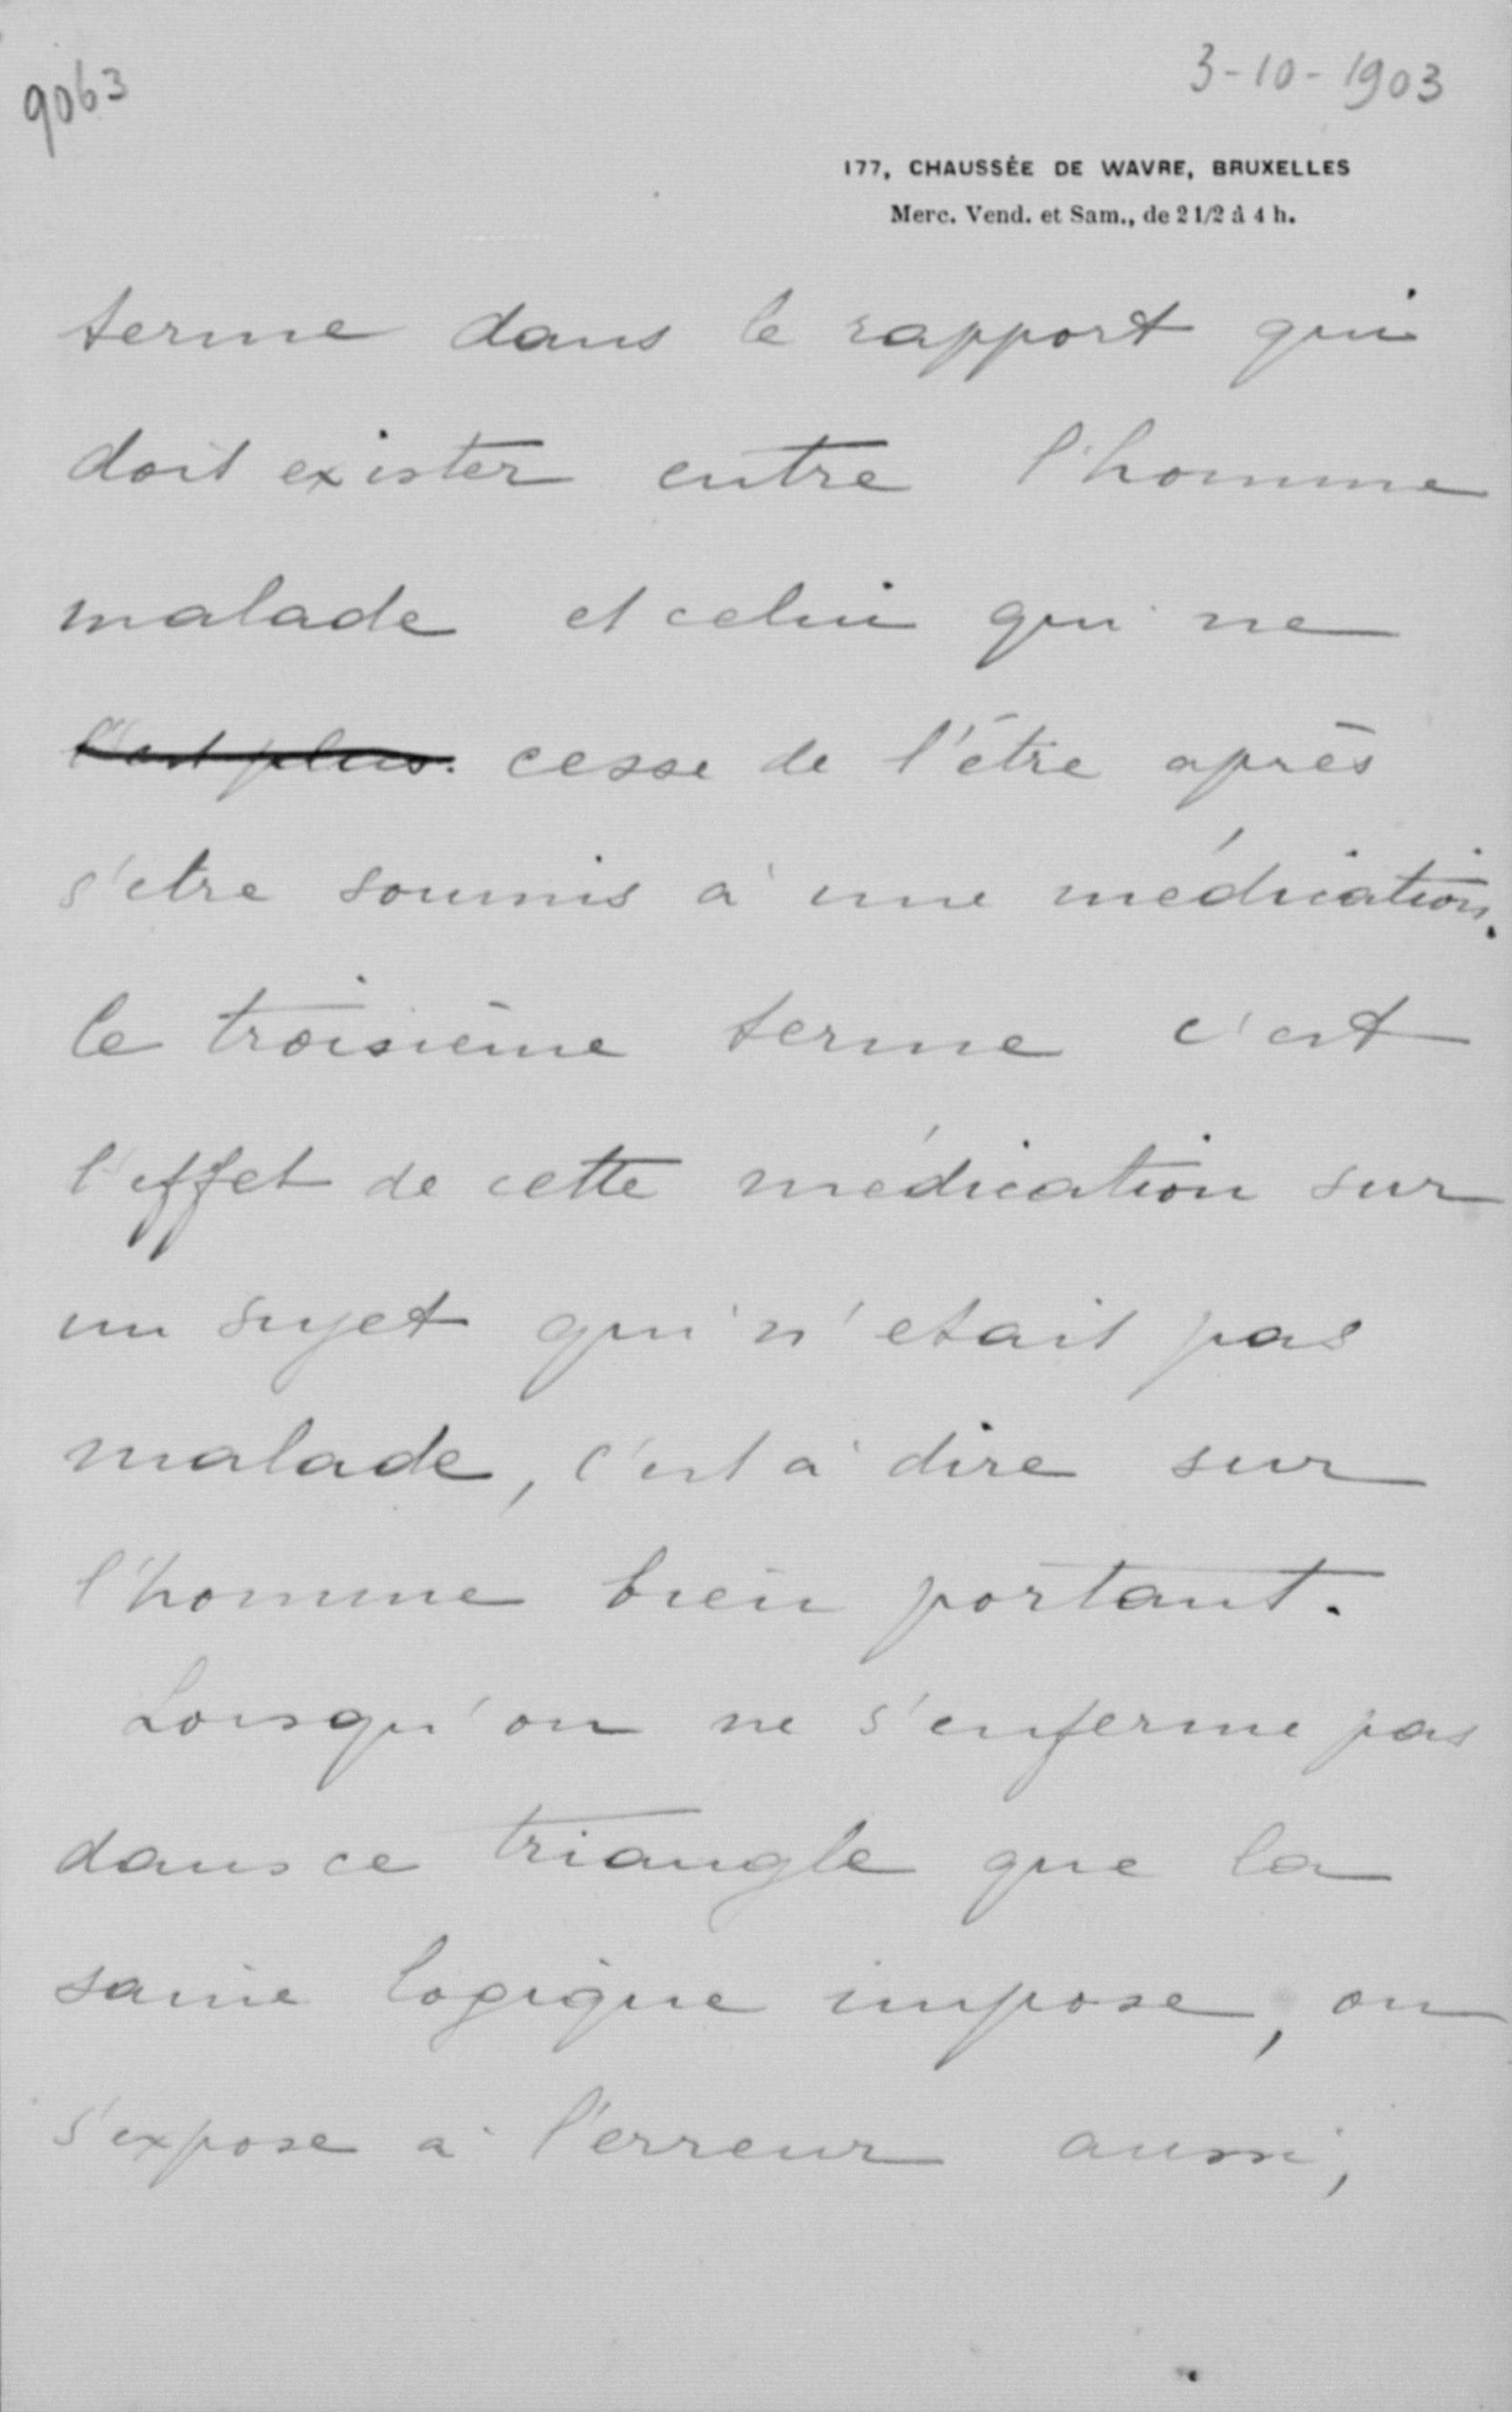 9063
3-10-1903
177, CHAUSSÉE DE WAVRE, BRUXELLES
Merc. Vend. et Sam., de 2 1/2 à 4 h.
terme dans le rapport qui
doit exister entre l'homme
malade et celui qui ne
l'est plus. cesse de l'être après
s'etre soumis à une médication.
le troisième terme c'est
l'effet de cette médication sur
un sujet qui n'etait pas
malade, c'est à dire sur
l'homme bien portant.
Lorsqu'on ne s'enferme pas
dans ce triangle que la
saine logique impose, on
s'expose à l'erreur aussi,